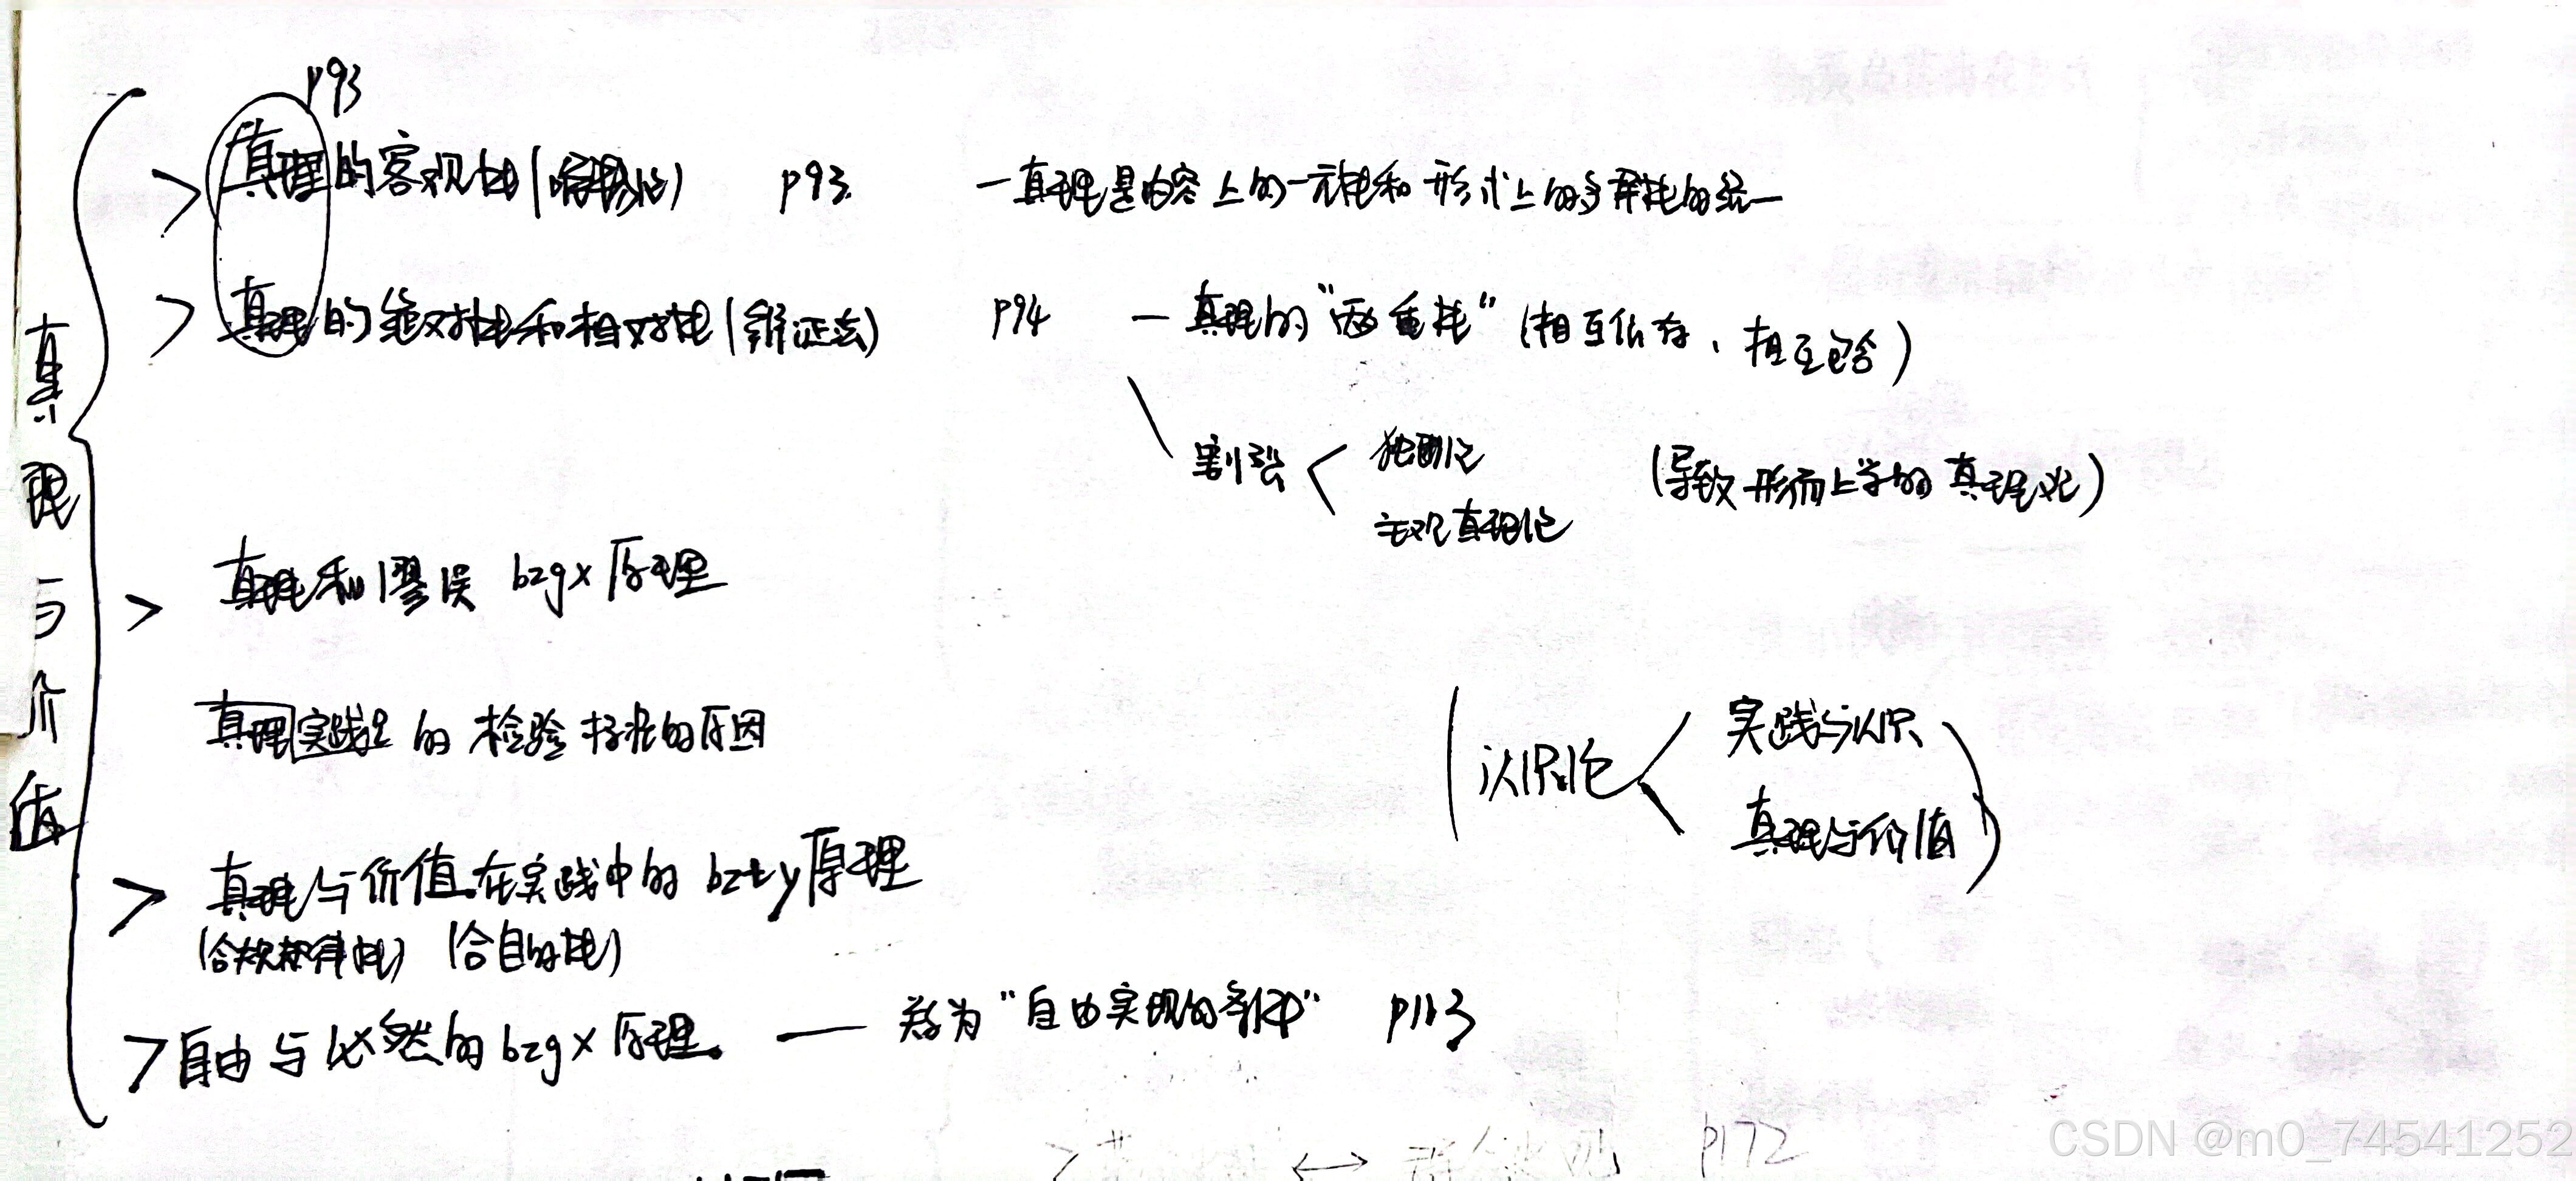 真理与价值
p93
> 真理的客观性(唯物论) p93. — 真理是内容上的一元性和形式上的多样性的统一
> 真理的绝对性和相对性(辩证法) p94 — 真理的“两重性”(相互依存、相互包含)
割裂 < 独断论 (导致形而上学的真理观)
主观真理论
> 真理和谬误 bzgx 原理
真理 实践 的检验标准的原因
(认识论 < 实践与认识
真理与价值)
> 真理与价值在实践中的 bzty 原理
(合规律性) (合目的性)
> 自由与必然的 bzgx 原理. — 考为“自由实现的条件” p113
p172
CSDN @m0_74541252